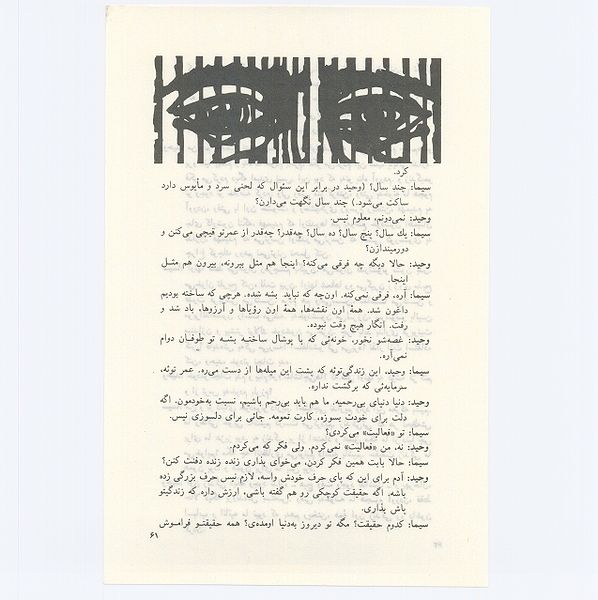 کرد.
سیما: چند سال؟ (وحید در برابر این سئوال که لحنی سرد و مأیوس دارد
ساکت می‌شود.) چند سال نگهت می‌دارن؟
وحید: نمی‌دونم، معلوم نیس.
سیما: یك سال؟ پنج سال؟ ده سال؟ چه‌قدر؟ چه‌قدر از عمرتو قیچی می‌کنن و
دورمیندازن؟
وحید: حالا دیگه چه فرقی می‌کنه؟ اینجا هم مثل بیرونه، بیرون هم مثـل
اینجا.
سیما: آره، فرقی نمی‌کنه. اون‌چه که نباید بشه شده. هرچی که ساخته بودیم
داغون شد. همهٔ اون نقشه‌ها، همهٔ اون رؤیاها و آرزوها، باد شد و
رفت. انگار هیچ وقت نبوده.
وحید: غصه‌شو نخور، خونه‌ئی که با پوشال ساختـه بشـه تو طوفـان دوام
نمی‌آره.
سیما: وحید، این زندگی‌توئه که پشت این میله‌ها از دست می‌ره. عمر توئه،
سرمایه‌ئی که برگشت نداره.
وحید: دنیا دنیای بی‌رحمیه. ما هم باید بی‌رحم باشیم، نسبت به‌خودمون. اگه
دلت برای خودت بسوزه، کارت تمومه. جائی برای دلسوزی نیس.
سیما: تو «فعالیت» می‌کردی؟
وحید: نه. من «فعالیت» نمی‌کردم. ولی فکر که می‌کردم.
سیما: حالا بابت همین فکر کردن، می‌خوای بذاری زنده زنده دفنت کنن؟
وحید: آدم برای این که پای حرف خودش واسه، لازم نیس حرف بزرگی زده
باشه. اگه حقیقت کوچکی رو هم گفته باشی، ارزش داره که زندگیتو
پاش بذاری.
سیما: کدوم حقیقت؟ مگه تو دیروز به‌دنیا اومده‌ی؟ همه حقیقتـو فرامـوش
۶۱